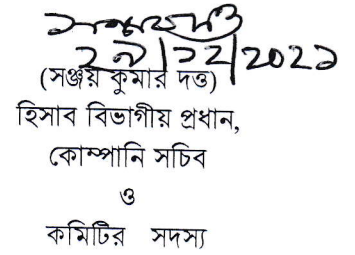 ২৯/১২/2021
(সঞ্জয় কুমার দত্ত)
হিসাব বিভাগীয় প্রধান,
কোম্পানি সচিব
ও
কমিটির সদস্য